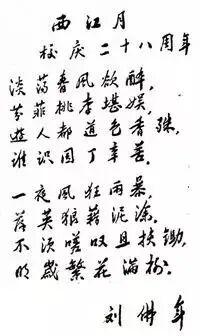 西江月
校庆二十八周年
淡荡春风欲醉，
芬菲桃李堪娱，
游人都道色香殊，
谁识园丁辛苦。
一夜风狂雨暴，
落英狼藉泥涂。
不须嗟叹且扶锄，
明岁繁花满树。
刘佛年